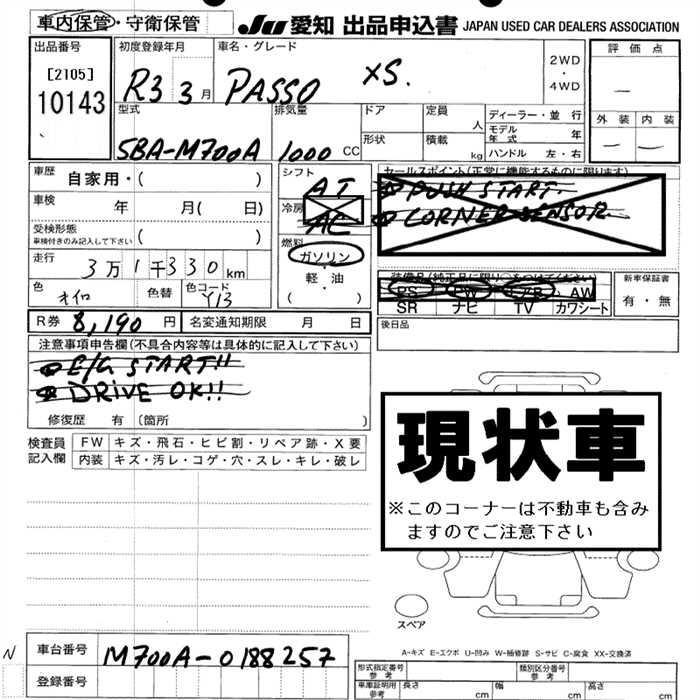 車内保管・守衛保管
JU 愛知 出品申込書 JAPAN USED CAR DEALERS ASSOCIATION
出品番号 初度登録年月 車名・グレード 2WD・4WD 評価点
[2105]
10143 R3 3月 PASSO XS. —
型式 排気量 ドア 定員 人 ディーラー・並行 外装 内装
形状 積載 kg モデル年式 年 — —
5BA-M700A 1000 CC ハンドル 左・右
車歴 自家用・( ) シフト AT セールスポイント(正常に機能するものに限ります)
PUSH START.
車検 年 月( 日) 冷房 AC CORNER SENSOR
受検形態 ( )
車検付きのみ記入して下さい
燃料 ガソリン・軽・油 ( )
走行 3万1千330km
装備品(純正品に限り○をつけてください) 新車保証書
色 オイロ 色替 色コード Y13 PS PW AB AW 有・無
SR ナビ TV カワシート
R券 8,190円 名変通知期限 月 日 後日品
注意事項申告欄(不具合内容等は具体的に記入して下さい)
E/G START!!
DRIVE OK!!
修復歴 有 (箇所 )
現状車
※このコーナーは不動車も含み
ますのでご注意下さい
検査員記入欄 FW キズ・飛石・ヒビ割・リペア跡・X要
内装 キズ・汚レ・コゲ・穴・スレ・キレ・破レ
スペア
A-キズ E-エクボ U-凹み W-補修跡 S-サビ C-腐食 XX-交換済
N 車台番号 M700A-0188257
登録番号
形式指定番号 参考 類別区分番号 参考
車庫証明用 参考 長さ cm 幅 cm 高さ cm